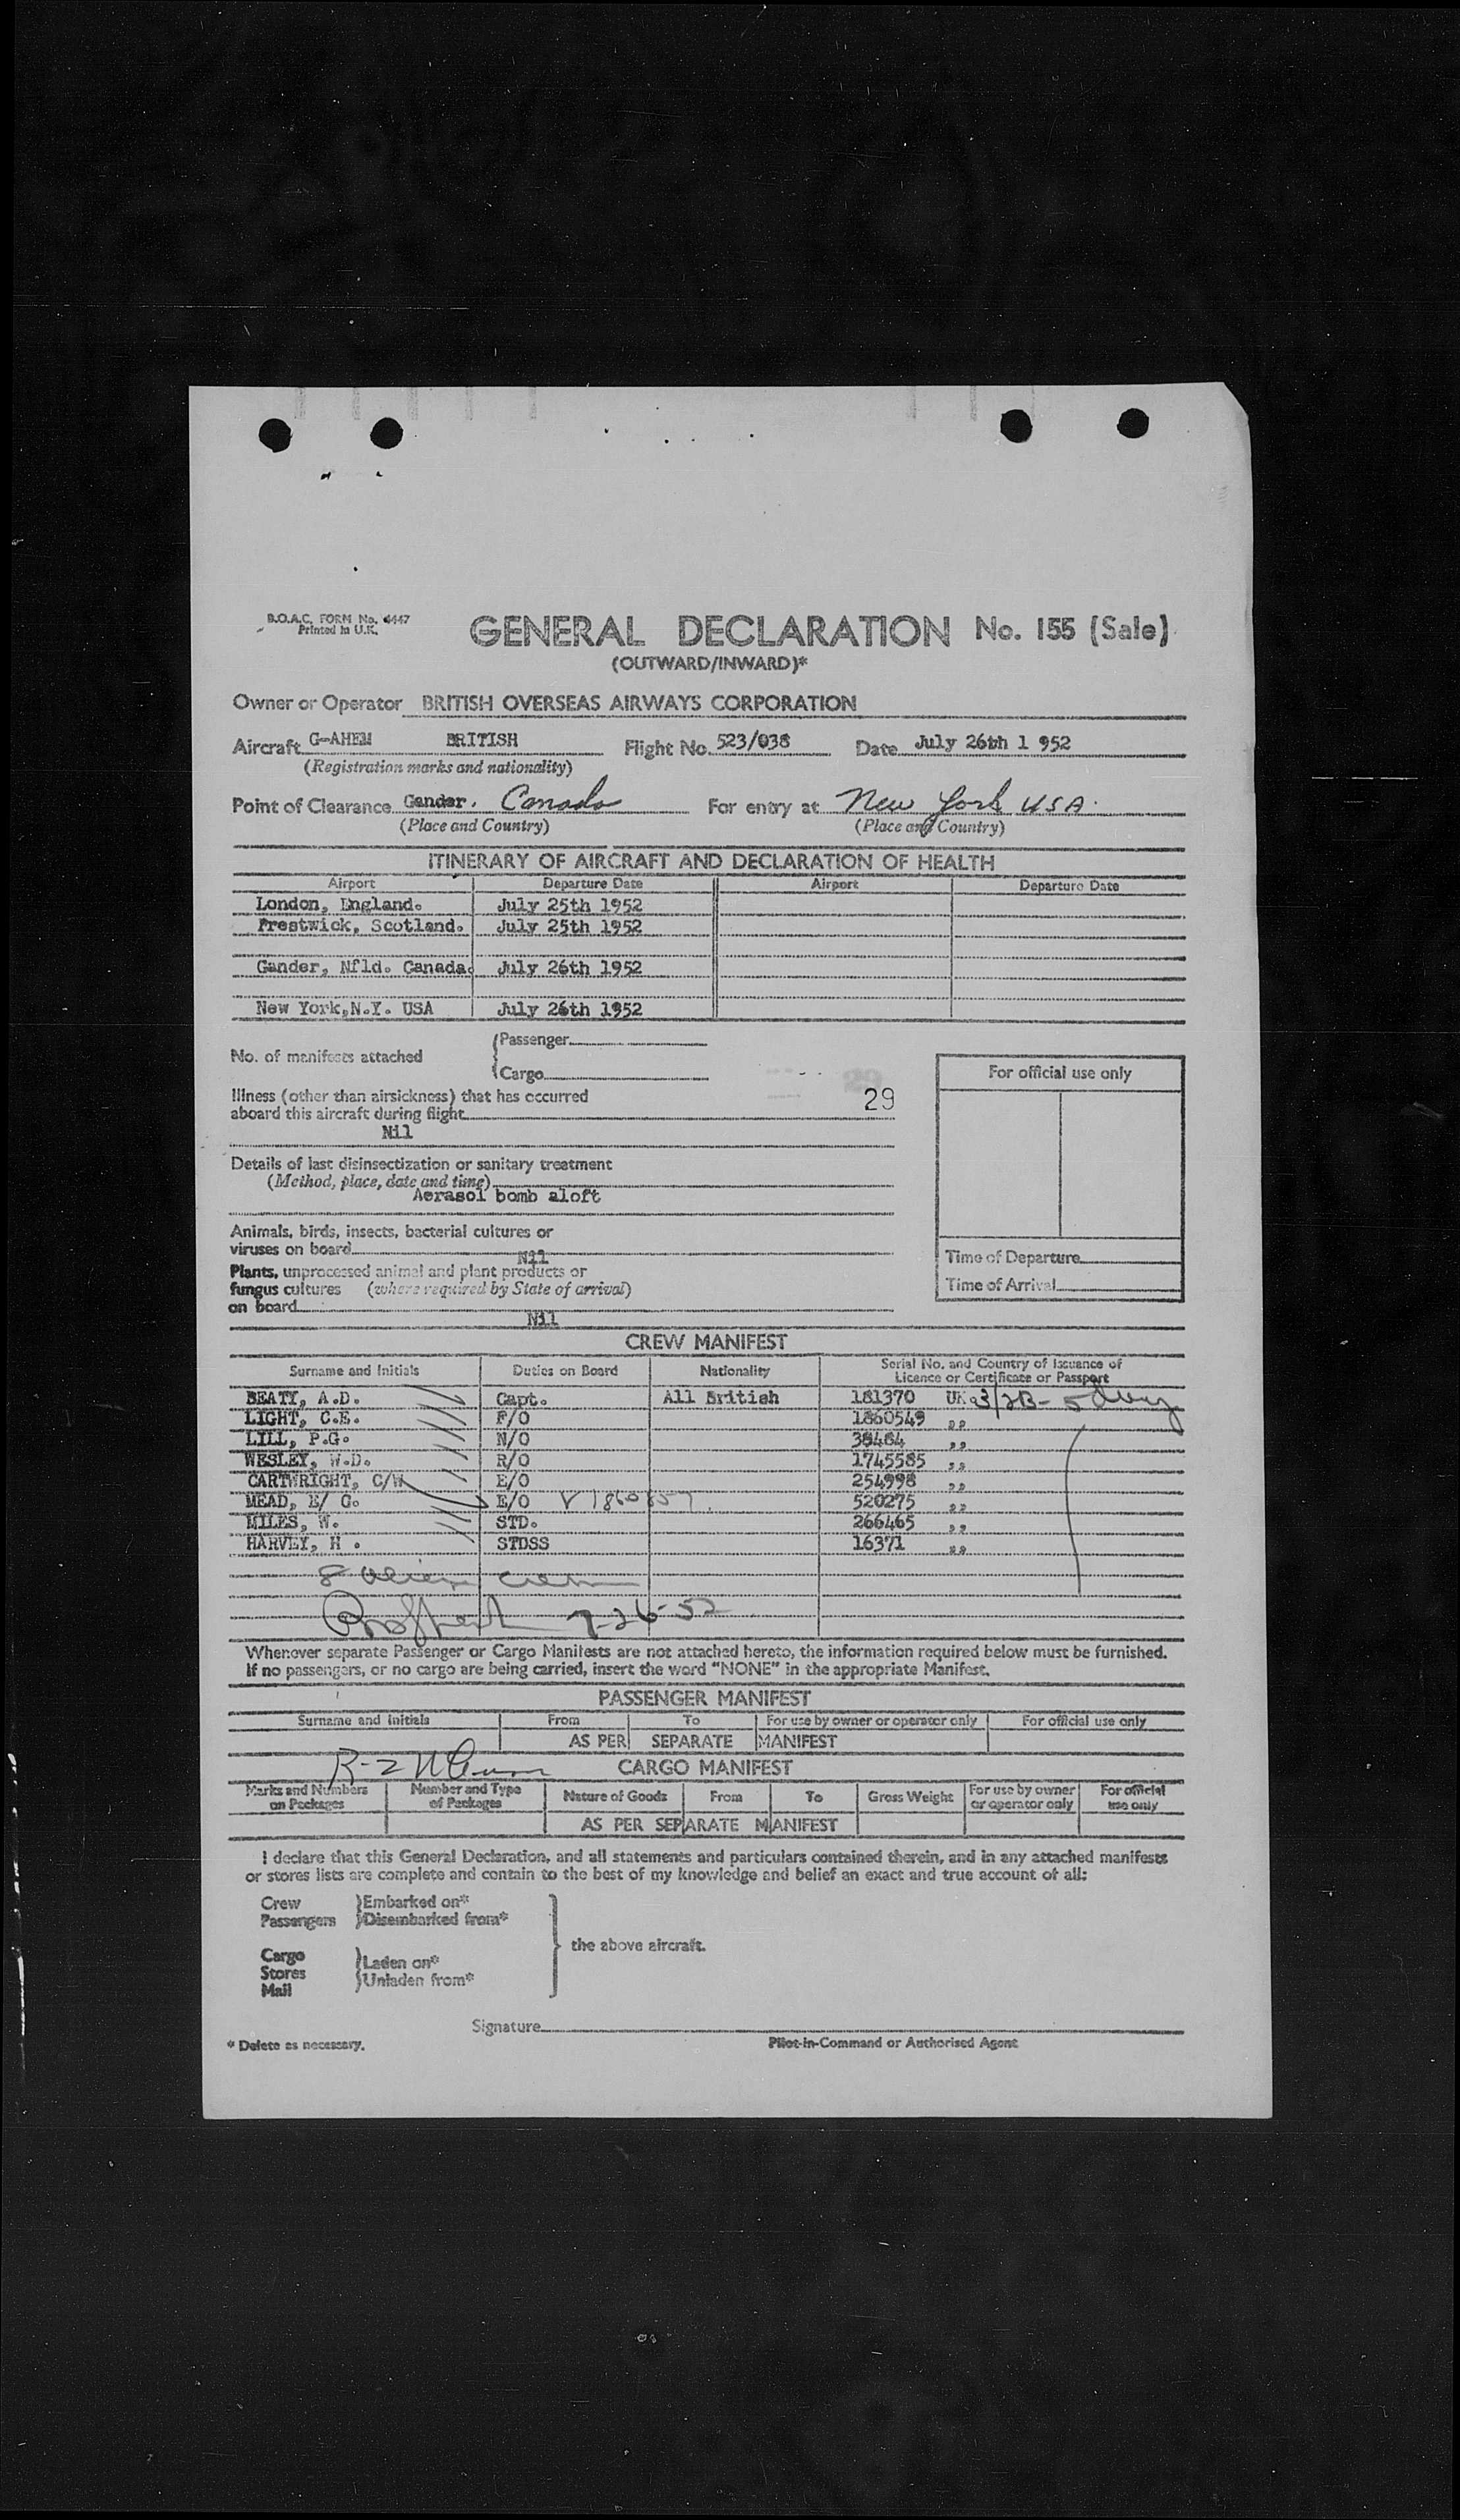 B.O.A.C. FORM No. 4447
Printed in U.K.
GENERAL DECLARATION No. 155 (Sale)
(OUTWARD/INWARD)*
Owner or Operator BRITISH OVERSEAS AIRWAYS CORPORATION
Aircraft G-AHEM BRITISH Flight No. 523/038 Date July 26th 1 952
(Registration marks and nationality)
Point of Clearance Gander. Canada For entry at New York USA.
(Place and Country) (Place and Country)
ITINERARY OF AIRCRAFT AND DECLARATION OF HEALTH
Airport Departure Date Airport Departure Date
London, England. July 25th 1952
Prestwick, Scotland. July 25th 1952
Gander, Nfld. Canada. July 26th 1952
New York,N.Y. USA July 26th 1952
No. of manifests attached { Passenger
Cargo
Illness (other than airsickness) that has occurred
aboard this aircraft during flight 29
Nil
Details of last disinsectization or sanitary treatment
(Method, place, date and time)
Aerasol bomb aloft
Animals, birds, insects, bacterial cultures or
viruses on board
Nil
Plants, unprocessed animal and plant products or
fungus cultures (where required by State of arrival)
on board
Nil
For official use only
Time of Departure
Time of Arrival
CREW MANIFEST
Surname and Initials Duties on Board Nationality Serial No. and Country of Issuance of
Licence or Certificate or Passport
BEATY, A.D. Capt. All British 181370 UK.
LIGHT, C.E. F/O 1860549 ,,
LILL, P.G. N/O 38484 ,,
WESLEY, W.D. R/O 1745585 ,,
CARTWRIGHT, C/W E/O 254998 ,,
MEAD, E/ G. E/O V 1860857. 520275 ,,
MILES, W. STD. 266465 ,,
HARVEY, H . STDSS 16371 ,,
8 alien crew
7-26-52
Whenever separate Passenger or Cargo Manifests are not attached hereto, the information required below must be furnished.
If no passengers, or no cargo are being carried, insert the word "NONE" in the appropriate Manifest.
PASSENGER MANIFEST
Surname and Initials From To For use by owner or operator only For official use only
AS PER SEPARATE MANIFEST
CARGO MANIFEST
Marks and Numbers on Packages Number and Type of Packages Nature of Goods From To Gross Weight For use by owner or operator only For official use only
AS PER SEPARATE MANIFEST
I declare that this General Declaration, and all statements and particulars contained therein, and in any attached manifests
or stores lists are complete and contain to the best of my knowledge and belief an exact and true account of all:
Crew } Embarked on*
Passengers } Disembarked from*
the above aircraft.
Cargo
Stores } Laden on*
Mail } Unladen from*
Signature
* Delete as necessary. Pilot-in-Command or Authorised Agent